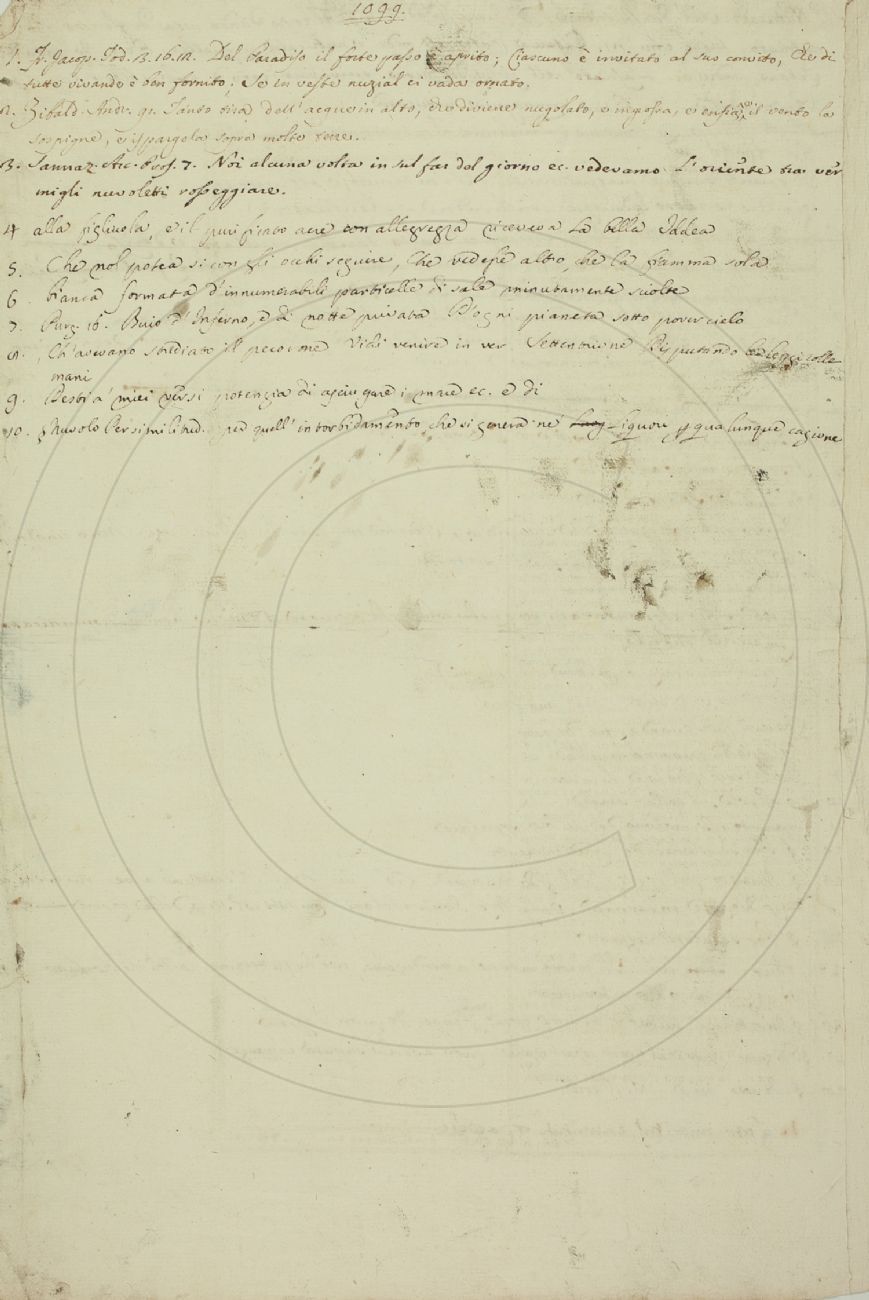 1099.
1. Fr. Jacop. Tod. 3. 16. 12. Del Paradiso il forte passo è aprito; Ciascuno è invitato al suo convito, Che di
tutte vivande è ben fornito; Se in veste nuzial ci vada ornato.
2. Zibald. Andr. 91. Tanto tira dell'acque in alto, che diviene nugolato, e ingrossa, e il vento la
sospigne, e ispargola sopra molte terre.
3. Sannaz. Arc. Pros. 7. Noi alcuna volta in sul far del giorno ec. vedevamo l'oriente tra ver
migli nuvoletti rosseggiare.
4 alla figliuola, e il purificato aere con allegrezza riceveva la bella Iddea
5. Che nol potea si con gli occhi seguire, Che vedesse altro, che la fiamma sola
6. bianca formata d'innumerabili particelle di sale minutamente sciolte
7. Purg. 16. Buio d'Inferno, e di notte privata D'ogni pianeta sotto pover cielo
8. Ch'avevano studiato il pecorone Vidi venire in ver Settentrione Disputando le leggi colle
mani
9. Desti a' miei versi potenzia di asciugare i mare ec. e di
10. § Nuvolo Per similitud. per quell'intorbidamento, che si genera ne' liquori p qualunque cagione